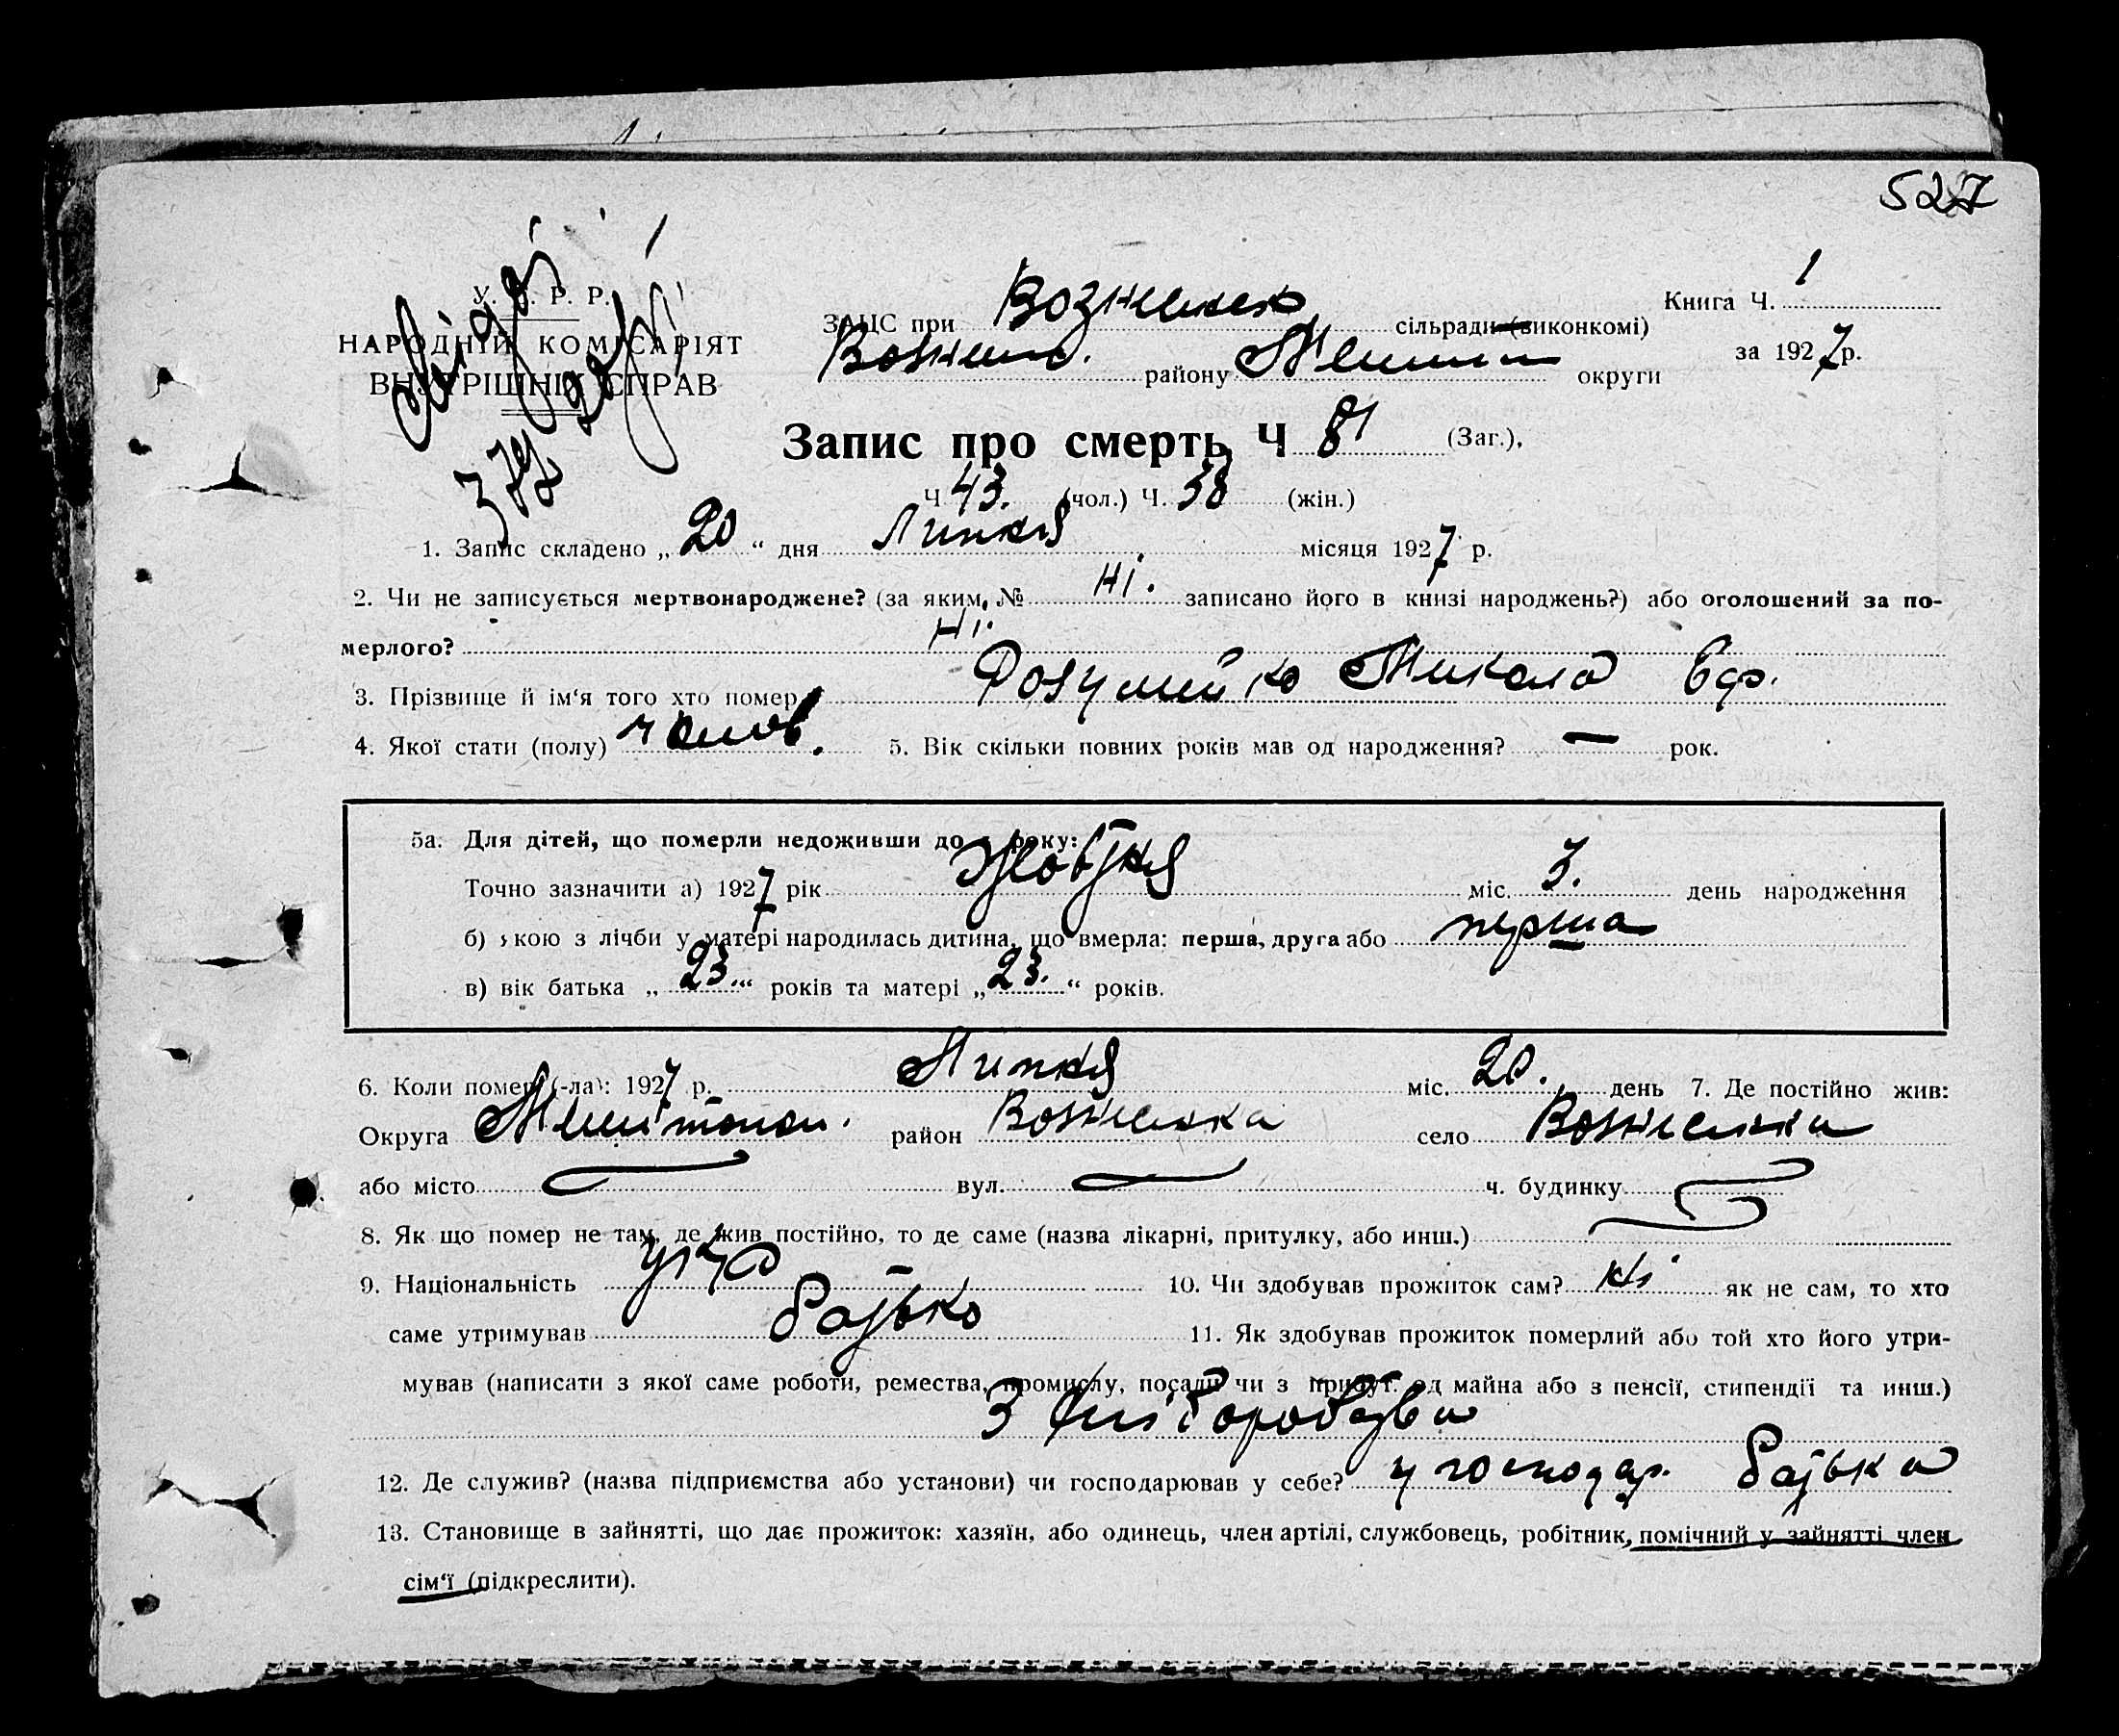 527
У. С. Р. Р.
НАРОДНІЙ КОМІСАРІЯТ
ВНУТРІШНІХ СПРАВ
ЗАЦС при Вознесенск сільради (виконкомі)
Книга Ч. 1
району округи
за 1927 р.
Запис про смерть Ч 81 (Заг.),
Ч 43. (чол.) Ч. 38 (жін.)
1. Запис складено „ 20 “ дня Липня місяця 1927 р.
2. Чи не записується мертвонароджене? (за яким № Ні. записано його в книзі народжень?) або оголошений за по-
мерлого? Ні.
3. Прізвище й ім'я того хто помер Розумейко Микола Еф.
4. Якої стати (полу) чолов. 5. Вік скільки повних років мав од народження? — рок.
5а. Для дітей, що померли недоживши до року:
Точно зазначити а) 1927 рік Жовтня міс. 3. день народження
б) якою з лічби у матері народилась дитина, що вмерла: перша, друга або перша
в) вік батька „ 23 “ років та матері „ 23. “ років.
6. Коли помер (-ла): 1927 р. Липня міс. 20. день 7. Де постійно жив:
Округа Мелітопол. район Вознесенка село Вознесенка
або місто вул. ч. будинку
8. Як що помер не там, де жив постійно, то де саме (назва лікарні, притулку, або инш.)
9. Національність укр 10. Чи здобував прожиток сам? Ні як не сам, то хто
саме утримував батько 11. Як здобував прожиток померлий або той хто його утри-
мував (написати з якої саме роботи, ремества, промислу, посади чи з прибут. од майна або з пенсії, стипендії та инш.)
З хліборобства
12. Де служив? (назва підприємства або установи) чи господарював у себе? у господар. батька
13. Становище в зайнятті, що дає прожиток: хазяїн, або одинець, член артілі, службовець, робітник, помічний у зайнятті член
сім'ї (підкреслити).